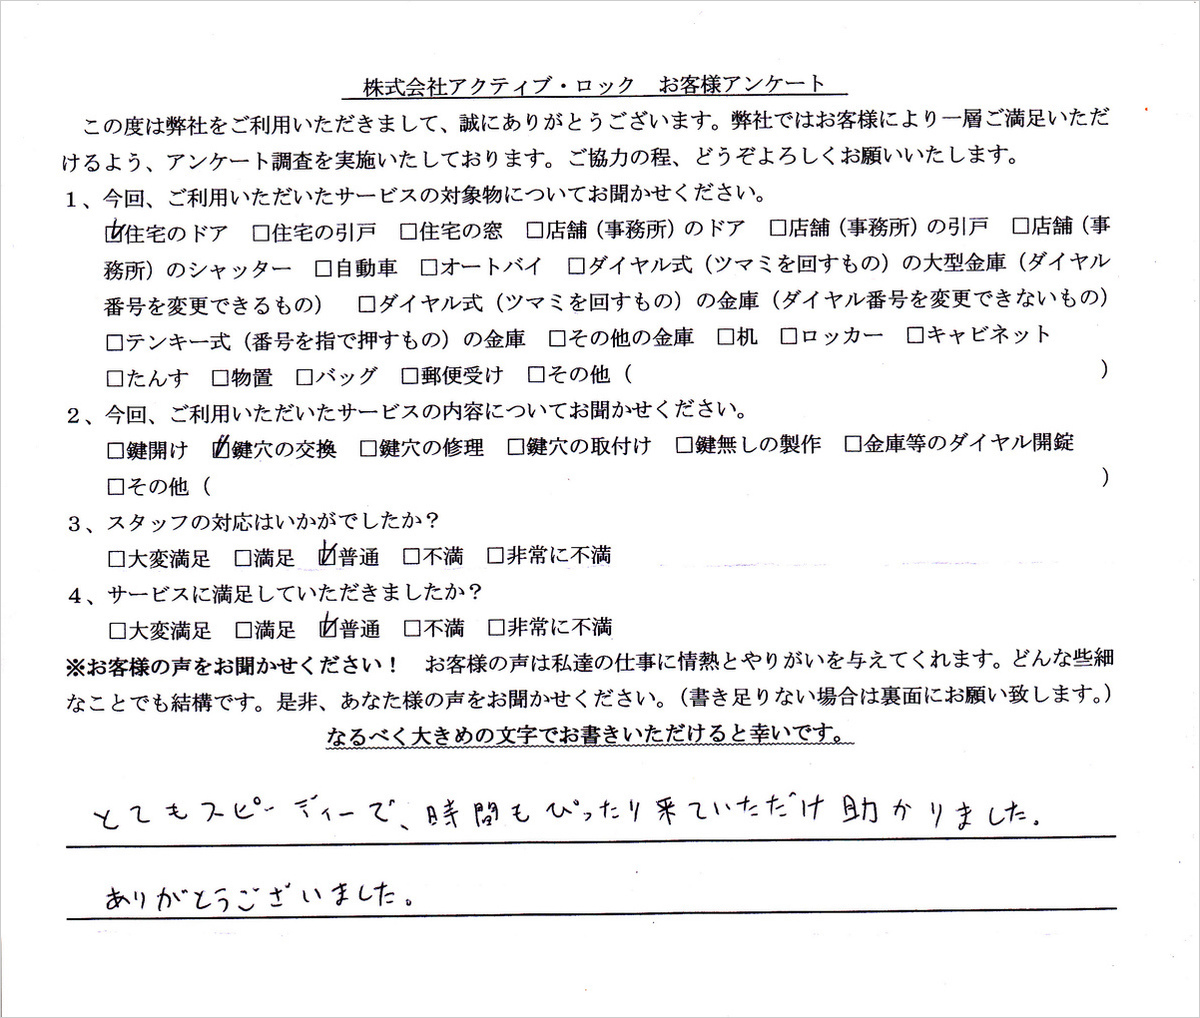 株式会社アクティブ・ロック　お客様アンケート
この度は弊社をご利用いただきまして、誠にありがとうございます。弊社ではお客様により一層ご満足いただ
けるよう、アンケート調査を実施いたしております。ご協力の程、どうぞよろしくお願いいたします。
１、今回、ご利用いただいたサービスの対象物についてお聞かせください。
☑住宅のドア　□住宅の引戸　□住宅の窓　□店舗（事務所）のドア　□店舗（事務所）の引戸　□店舗（事
務所）のシャッター　□自動車　□オートバイ　□ダイヤル式（ツマミを回すもの）の大型金庫（ダイヤル
番号を変更できるもの）　□ダイヤル式（ツマミを回すもの）の金庫（ダイヤル番号を変更できないもの）
□テンキー式（番号を指で押すもの）の金庫　□その他の金庫　□机　□ロッカー　□キャビネット
□たんす　□物置　□バッグ　□郵便受け　□その他（　　　）
２、今回、ご利用いただいたサービスの内容についてお聞かせください。
□鍵開け　☑鍵穴の交換　□鍵穴の修理　□鍵穴の取付け　□鍵無しの製作　□金庫等のダイヤル開錠
□その他（　　　）
３、スタッフの対応はいかがでしたか？
□大変満足　□満足　☑普通　□不満　□非常に不満
４、サービスに満足していただきましたか？
□大変満足　□満足　☑普通　□不満　□非常に不満
※お客様の声をお聞かせください！　お客様の声は私達の仕事に情熱とやりがいを与えてくれます。どんな些細
なことでも結構です。是非、あなた様の声をお聞かせください。（書き足りない場合は裏面にお願い致します。）
なるべく大きめの文字でお書きいただけると幸いです。
とてもスピーディーで、時間もぴったり来ていただけ助かりました。
ありがとうございました。